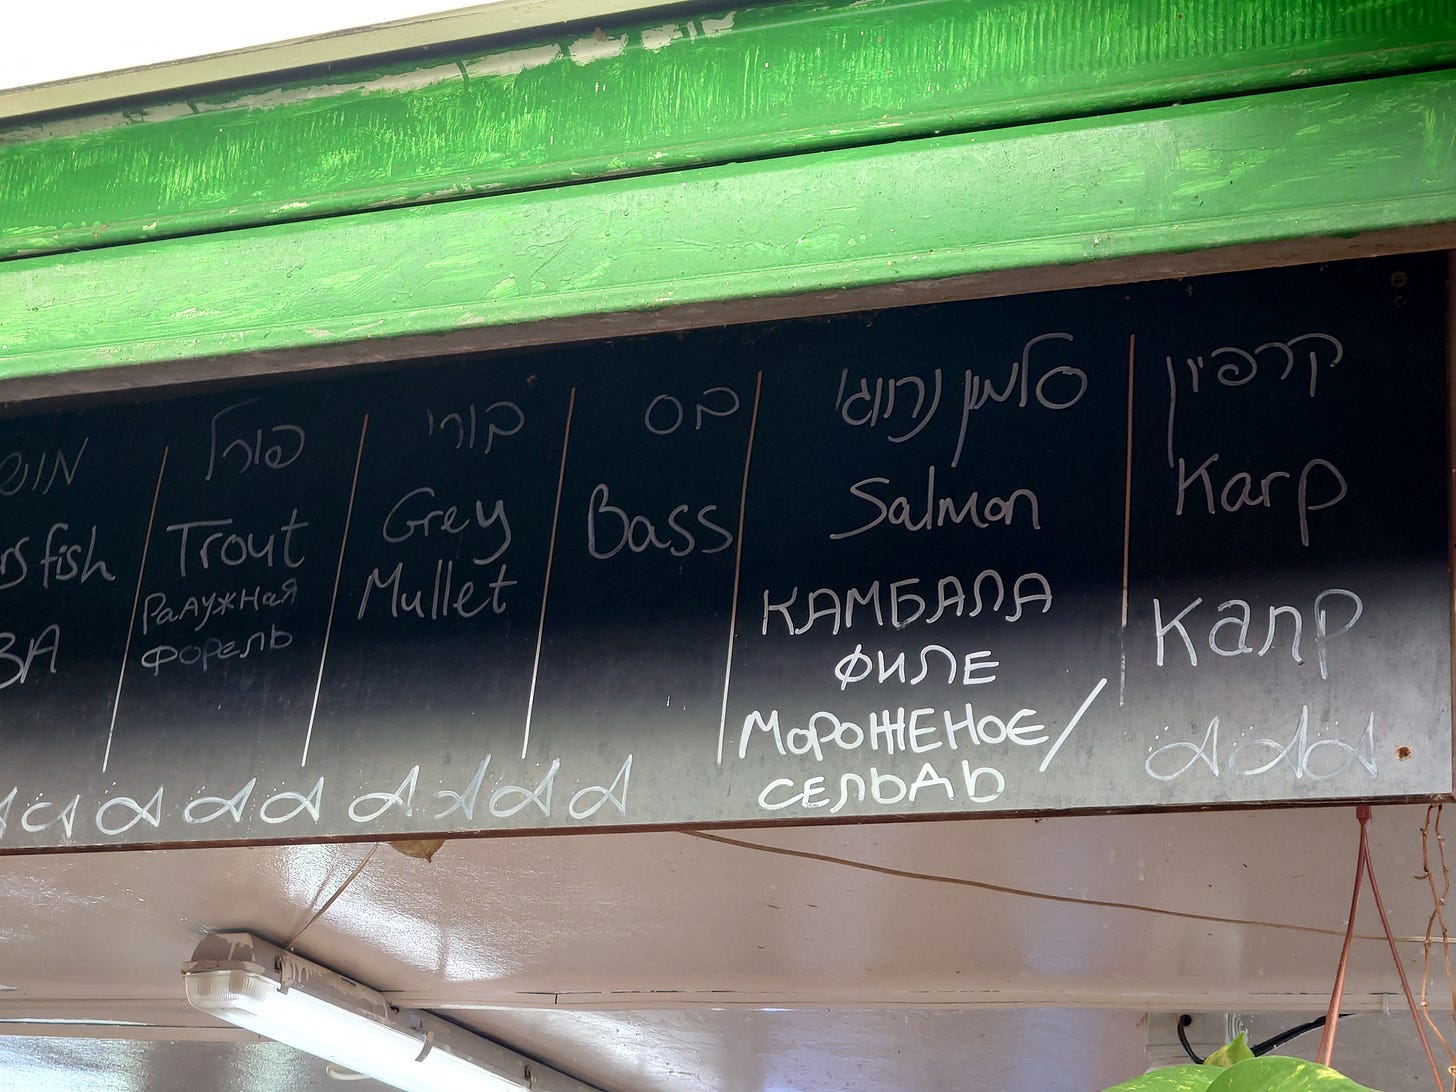 מוש
fish
ЗА
פורל
Trout
Радужная
форель
בורי
Grey
Mullet
בס
Bass
סלמון נרווגי
Salmon
КАМБАЛА
ФИЛЕ
МОРОЖЕНОЕ/
СЕЛЬДЬ
קרפיון
Karp
Капр